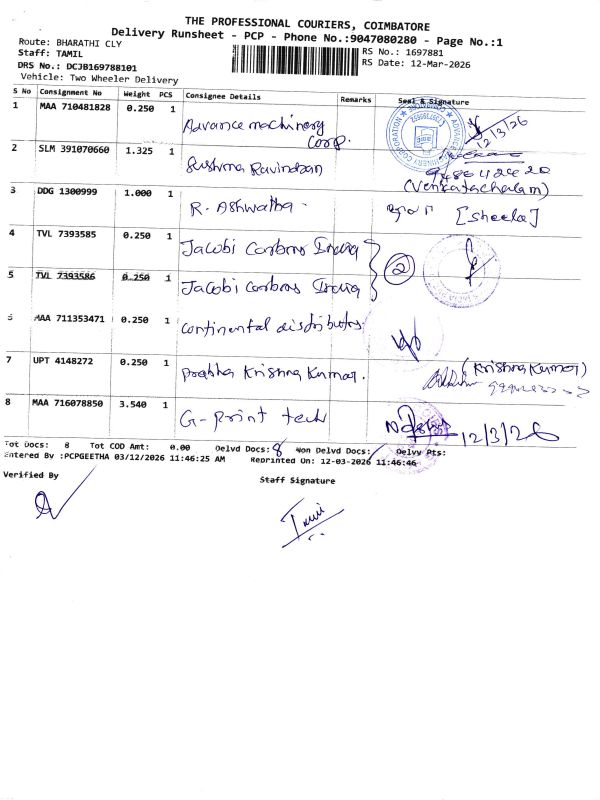 THE PROFESSIONAL COURIERS, COIMBATORE
Delivery Runsheet - PCP - Phone No.:9047080280 - Page No.:1
Route: BHARATHI CLY
RS No.: 1697881
Staff: TAMIL
RS Date: 12-Mar-2026
DRS No.: DCJB169788101
Vehicle: Two Wheeler Delivery
S No Consignment No Weight PCS Consignee Details Remarks Seal & Signature
1 MAA 710481828 0.250 1 Advance machinery Corp. 12/3/26
2 SLM 391070660 1.325 1 Sushma Ravindran
(Venkatachalam)
3 DDG 1300999 1.000 1 R. Ashwatha. [Sheela]
4 TVL 7393585 0.250 1 Jacobi Carbons India
2
5 TVL 7393586 0.250 1 Jacobi Carbons India
6 MAA 711353471 0.250 1 Continental distributors.
7 UPT 4148272 0.250 1 Prabha Krishna Kumar. (Krishna Kumar)
8 MAA 716078850 3.540 1 G-Print tech 12/3/26
Tot Docs: 8 Tot COD Amt: 0.00 Delvd Docs: 8 Non Delvd Docs: Delvy Pts:
Entered By :PCPGEETHA 03/12/2026 11:46:25 AM Reprinted On: 12-03-2026 11:46:46
Verified By
Staff Signature